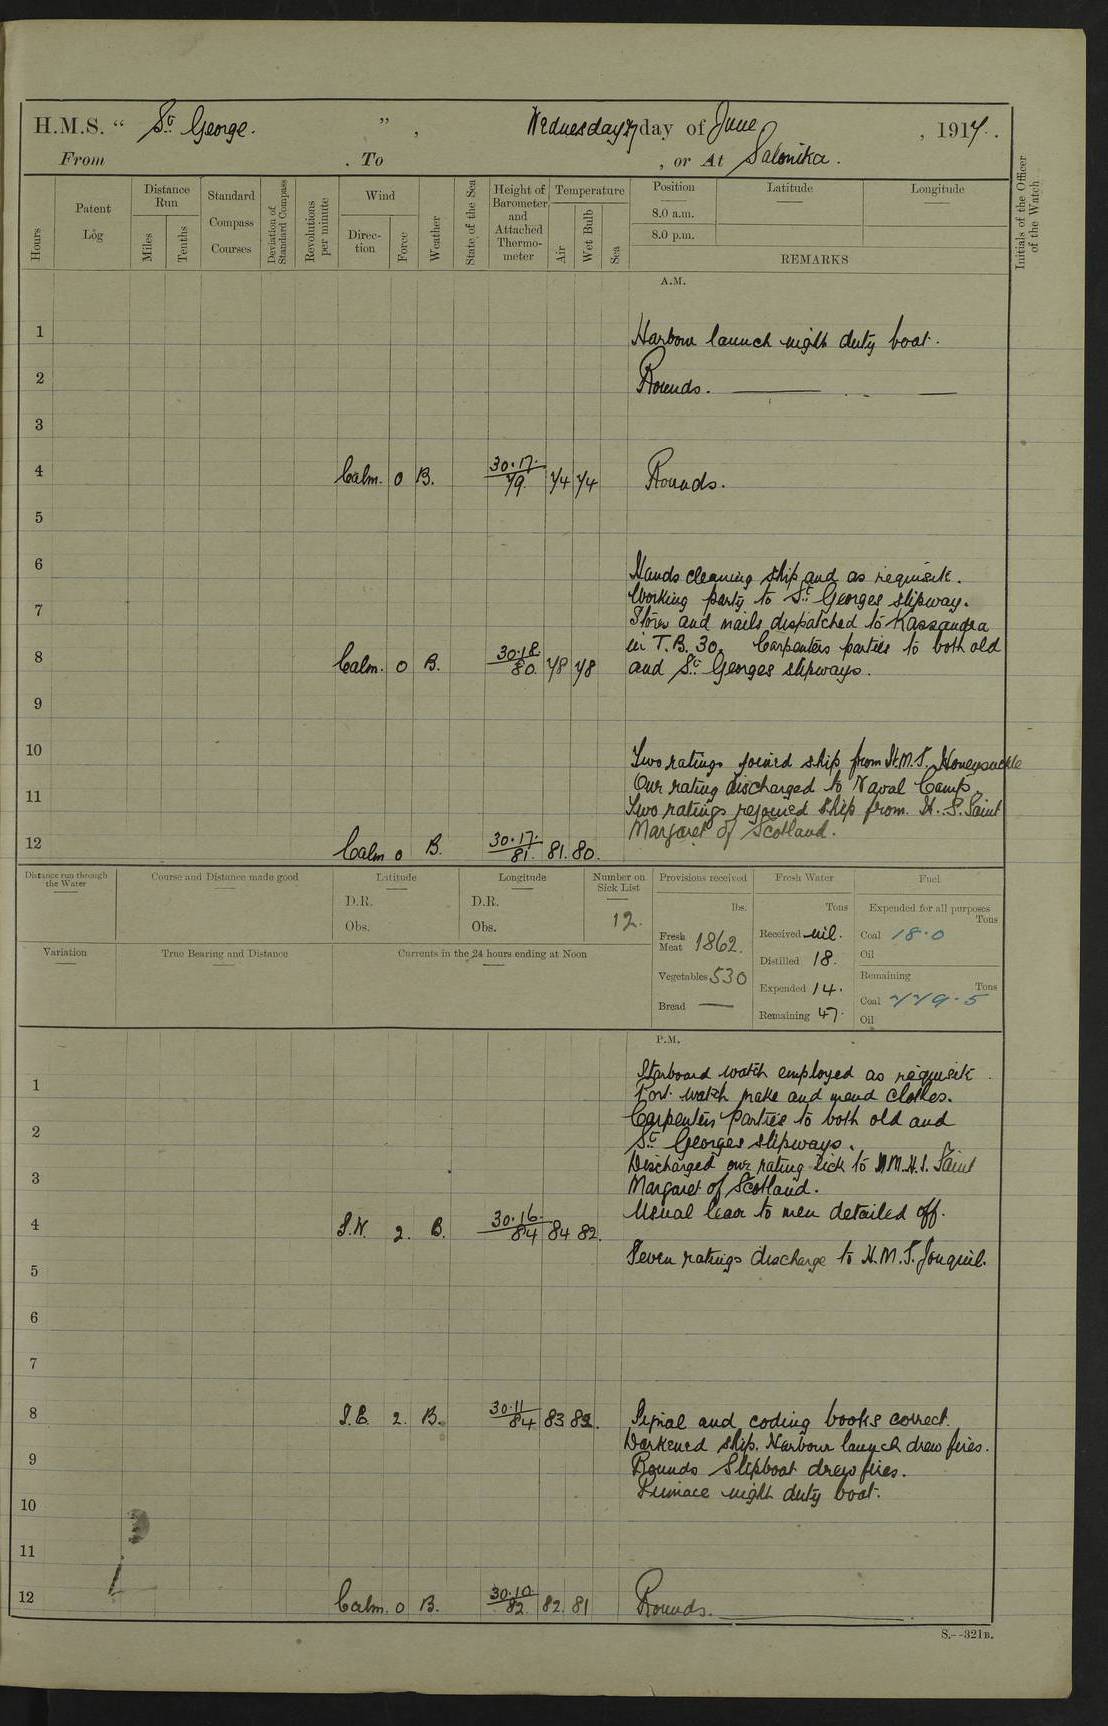 H.M.S. " St George. " , Wednesday 27 day of June , 1917.
From . To , or At Salonika.
Hours
Patent Log
Distance Run
Miles
Tenths
Standard Compass Courses
Deviation of Standard Compass
Revolutions per minute
Wind
Direc-tion
Force
Weather
State of the Sea
Height of Barometer and Attached Thermo-meter
Temperature
Air
Wet Bulb
Sea
Position
Latitude
Longitude
8.0 a.m.
8.0 p.m.
REMARKS
Initials of the Officer of the Watch
A.M.
1 Harbour launch night duty boat.
2 Rounds.
3
4 Calm. 0 B. 30.17. 79. 74 74 Rounds.
5
6 Hands cleaning ship and as requisite.
Working party to St Georges slipway.
7 Stores and mails dispatched to Kassandra
in T.B. 30. Carpenters parties to both old
8 Calm. 0 B. 30.18. 80. 78 78 and St Georges slipways.
9
10 Two ratings joined ship from H.M.S. Honeysuckle
One rating discharged to Naval Camp.
11 Two ratings rejoined ship from H. S. Saint
Margaret of Scotland.
12 Calm 0 B. 30.17. 81. 81. 80.
Distance run through the Water
Course and Distance made good
Latitude
D.R.
Obs.
Longitude
D.R.
Obs.
Number on Sick List
12.
Provisions received
lbs.
Fresh Meat 1862.
Vegetables 530
Bread —
Fresh Water
Tons
Received nil.
Distilled 18.
Expended 14.
Remaining 47.
Fuel
Expended for all purposes
Tons
Coal 18.0
Oil
Remaining
Tons
Coal 779.5
Oil
Variation
True Bearing and Distance
Currents in the 24 hours ending at Noon
P.M.
Starboard watch employed as requisite
1 Port watch make and mend clothes.
Carpenters parties to both old and
2 St Georges slipways.
Discharged one rating sick to H.M.H.S. Saint
3 Margaret of Scotland.
Usual leave to men detailed off.
4 S.W. 2. B. 30.16. 84 84 82.
Seven ratings discharge to H.M.S. Jonquil.
5
6
7
8 S.E. 2. B. 30.11 84 83 82. Signal and coding books correct.
Darkened ship. Harbour launch drew fires.
9 Rounds Slipboat drew fires.
Furnace night duty boat.
10
11
12 Calm. 0 B. 30.10 82. 82. 81 Rounds.
S.--321B.